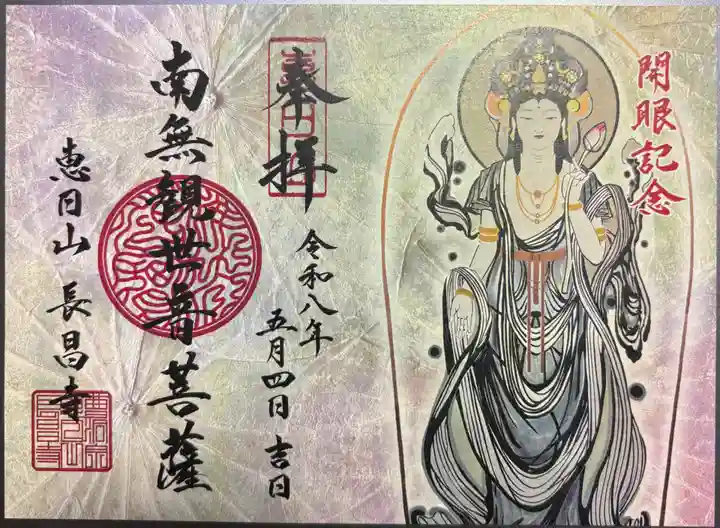 開眼記念
奉拝
令和八年
五月四日 吉日
南無観世音菩薩
恵日山 長昌寺